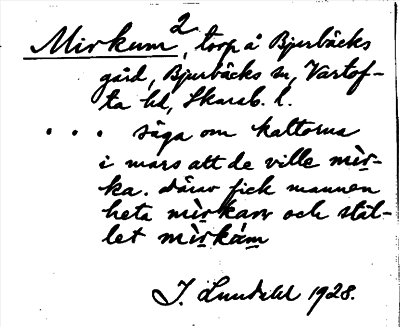 Mirkum 2, torp å Bjurbäcks
gård, Bjurbäcks sn, Vartof-
ta hd, Skarab. l.
. . . säga om kattorna
i mars att de ville mìr-
ka. därav fick mannen
heta mìrkarn och stäl-
let mìrkám
J. Lundahl 1928.